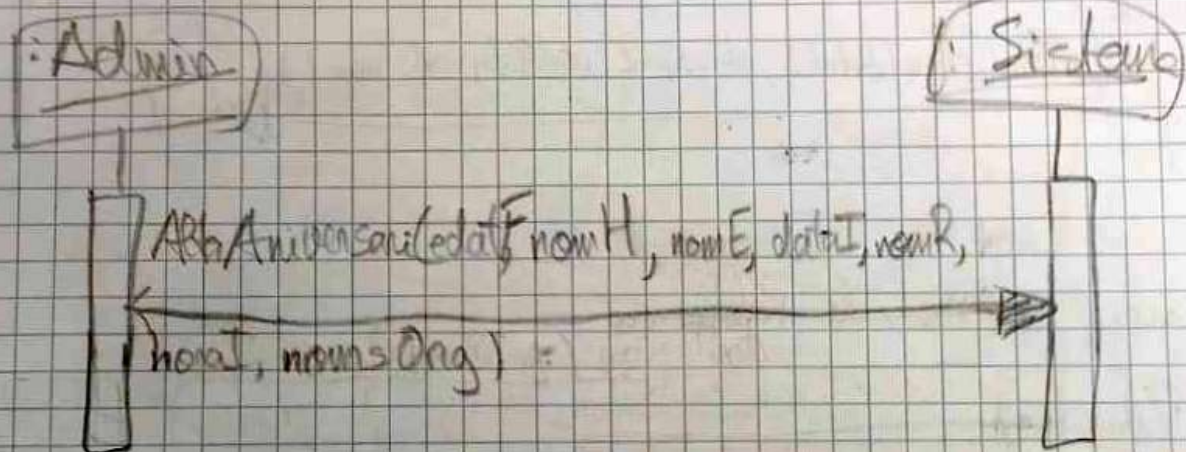 :Admin
: Sistema
AltaAniversari(edatF, nomH, nomE, dataI, nomR,
horaI, nomsOrg) :